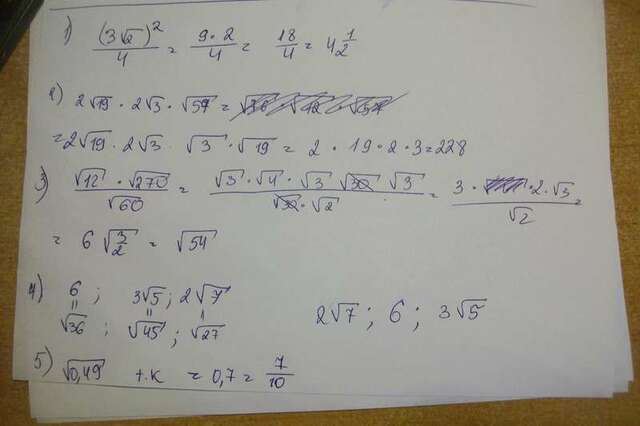 1) (3√2)²/4 = 9·2/4 = 18/4 = 4 1/2
2) 2√19 · 2√3 · √57 =
= 2√19 · 2√3 · √3 · √19 = 2 · 19 · 2 · 3 = 228
3) √12 · √270 / √60 = √3 · √4 · √3 √30 √3 / √30 · √2 = 3 · 2 · √3 / √2 =
= 6 √3/2 = √54
4) 6 ; 3√5 ; 2√7
√36 ; √45 ; √27 2√7 ; 6 ; 3√5
5) √0,49 т.к = 0,7 = 7/10